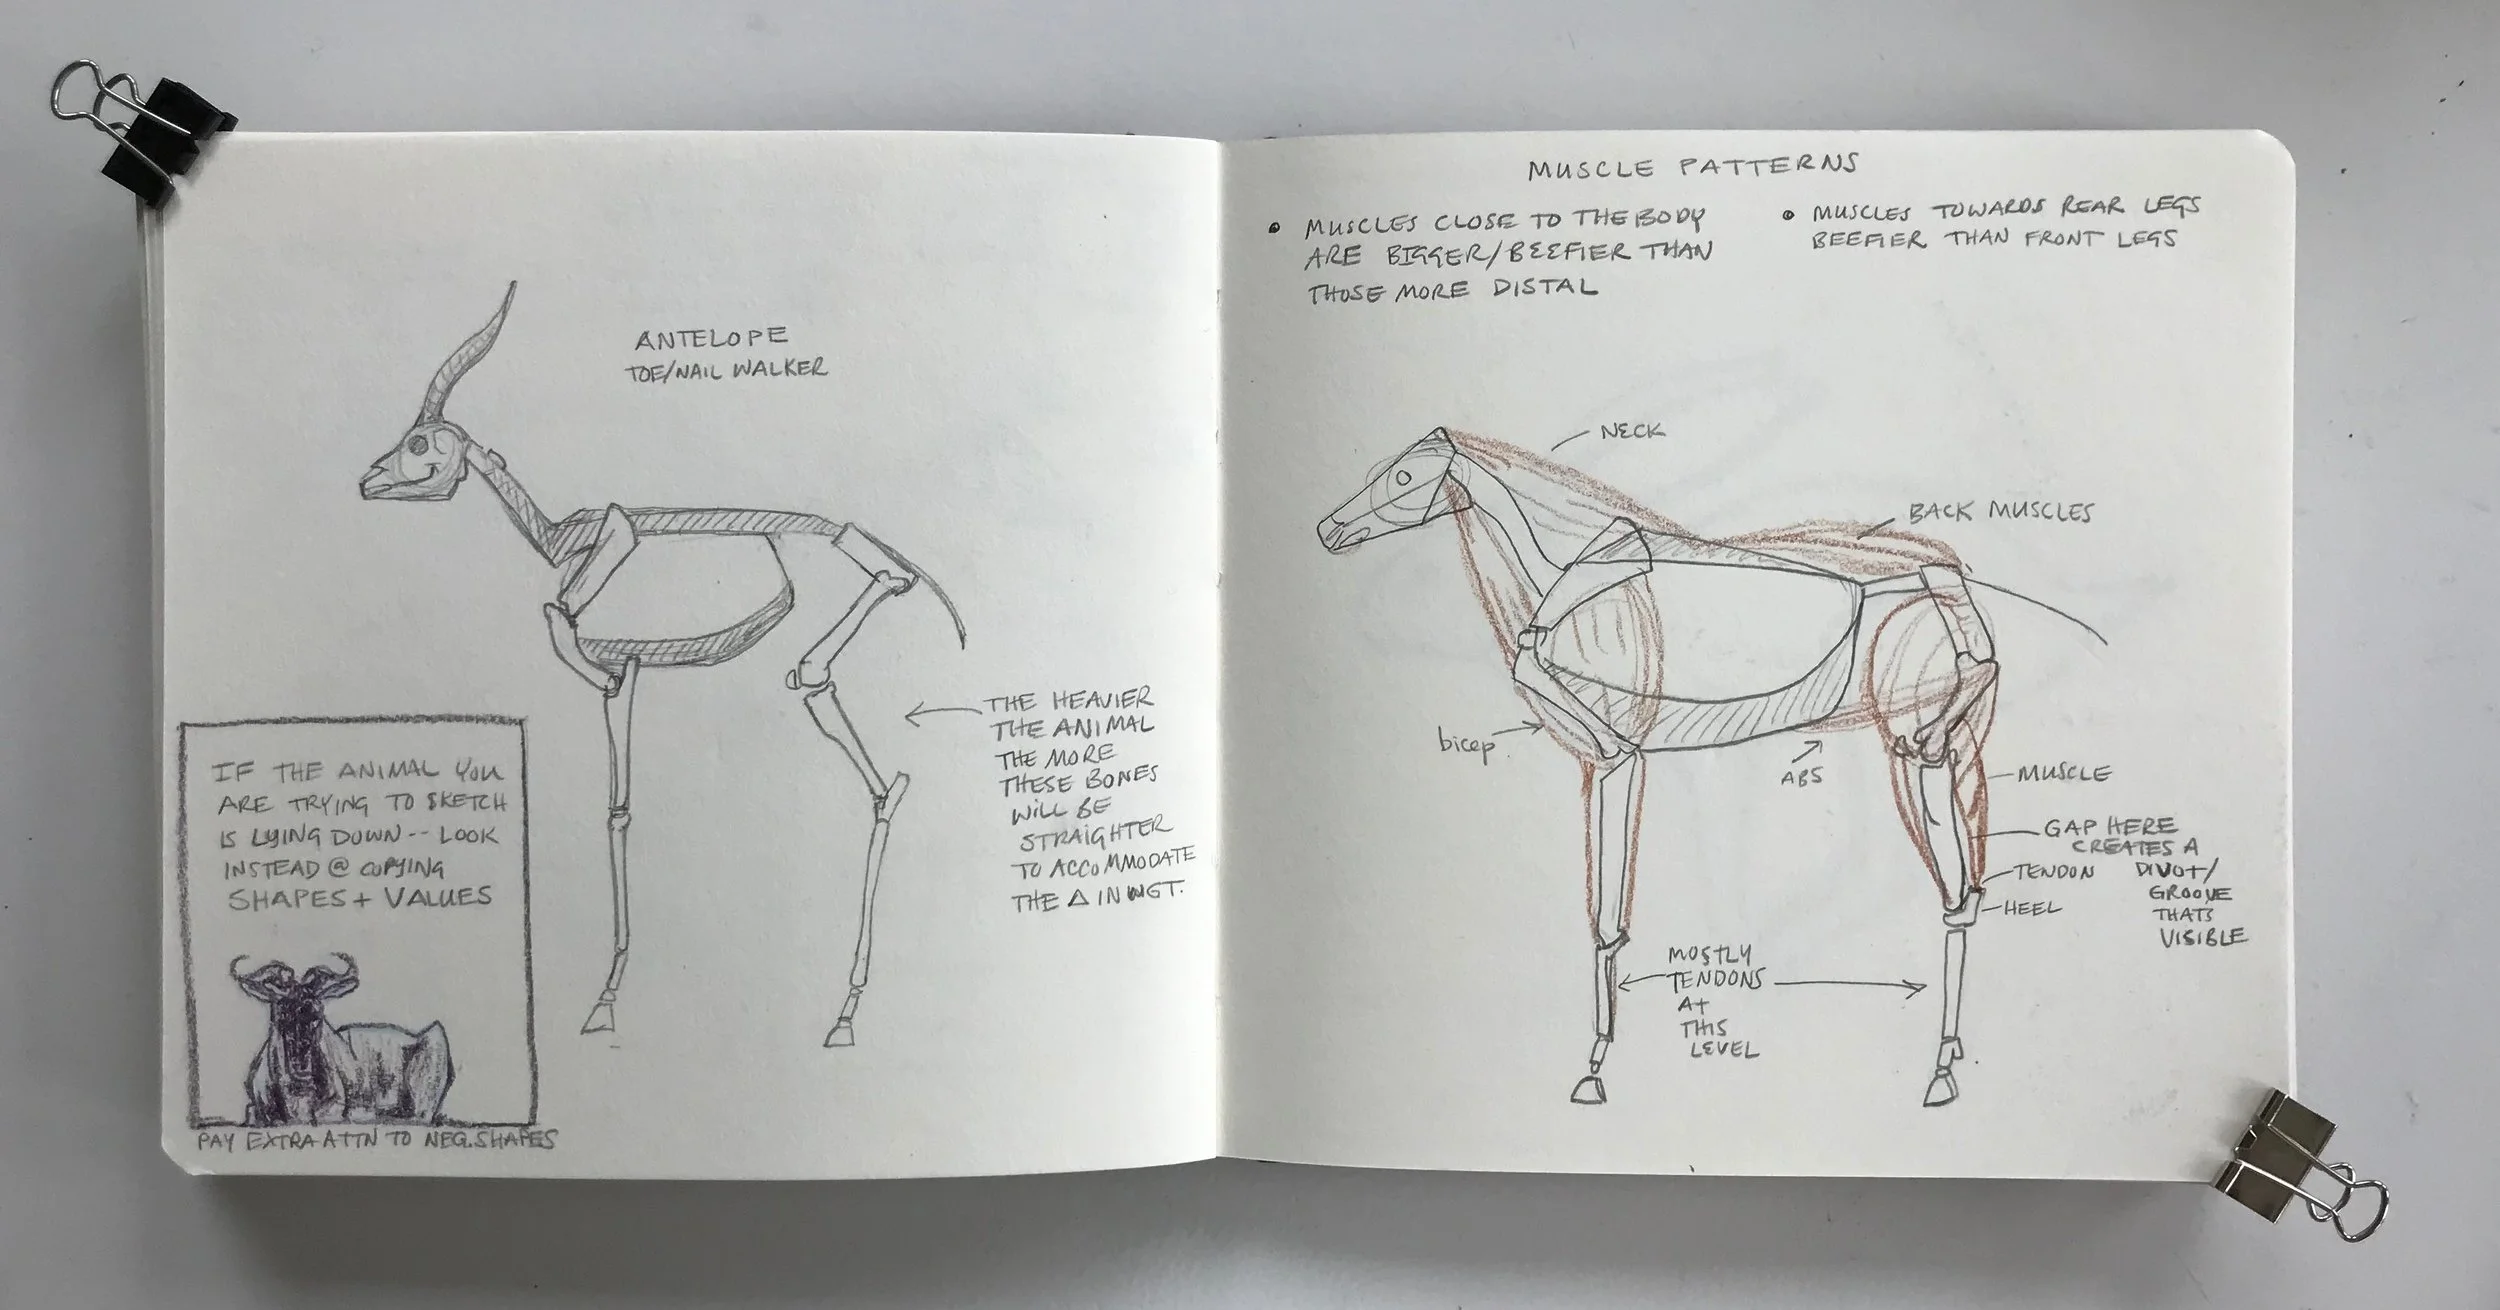 ANTELOPE
TOE/NAIL WALKER
THE HEAVIER
THE ANIMAL
THE MORE
THESE BONES
WILL BE
STRAIGHTER
TO ACCOMMODATE
THE Δ IN WGT.
IF THE ANIMAL YOU
ARE TRYING TO SKETCH
IS LYING DOWN -- LOOK
INSTEAD @ COPYING
SHAPES + VALUES
PAY EXTRA ATTN TO NEG. SHAPES
MUSCLE PATTERNS
• MUSCLES CLOSE TO THE BODY
ARE BIGGER/BEEFIER THAN
THOSE MORE DISTAL
• MUSCLES TOWARDS REAR LEGS
BEEFIER THAN FRONT LEGS
NECK
BACK MUSCLES
bicep
ABS
MUSCLE
GAP HERE
CREATES A
DIVOT/
GROOVE
THATS
VISIBLE
TENDON
HEEL
MOSTLY
TENDONS
AT
THIS
LEVEL